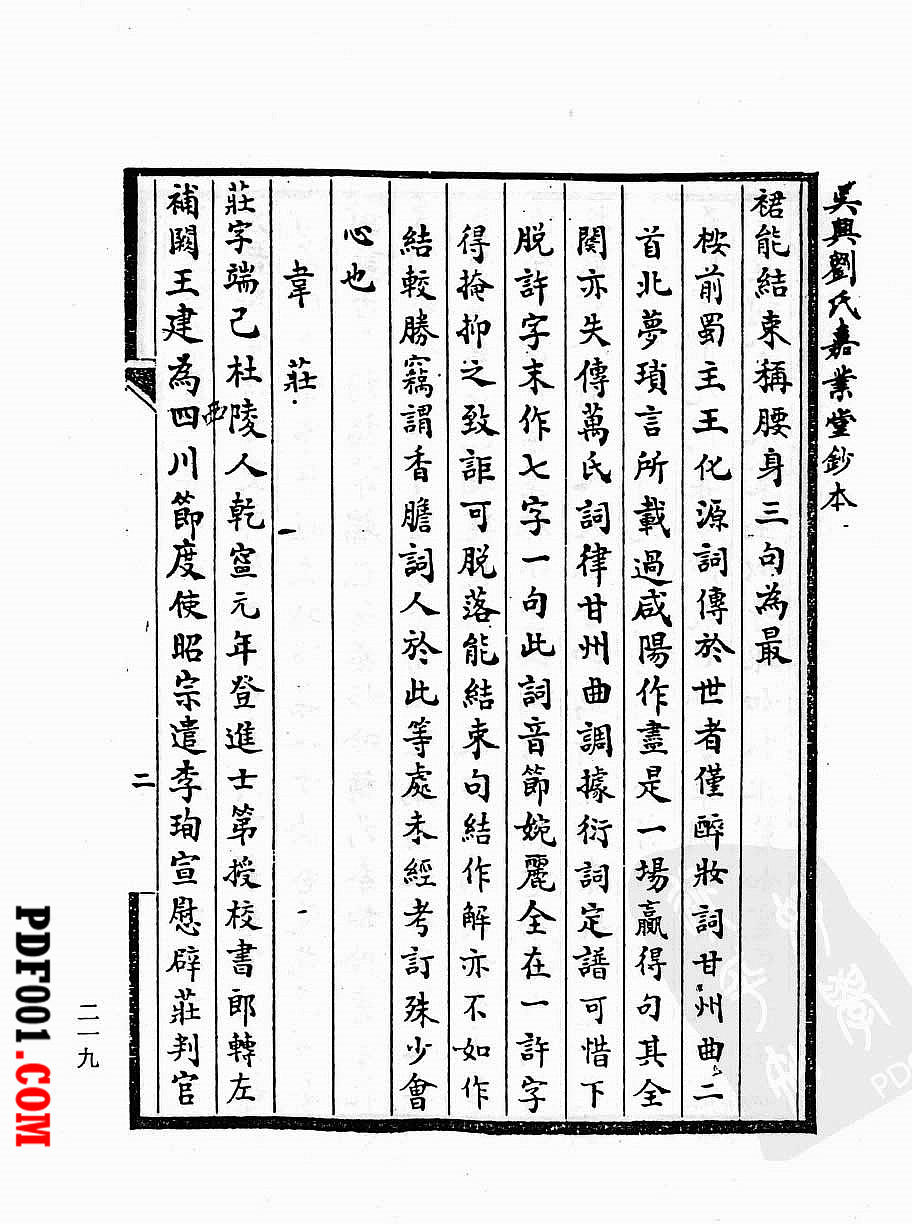 吳興劉氏嘉業堂鈔本
裙能結束稱腰身三句為最
桉前蜀主王化源詞傳於世者僅醉妝詞甘州曲二
首北夢瑣言所載過咸陽作盡是一場贏得句其全
闋亦失傳萬氏詞律甘州曲調據衍詞定譜可惜下
脱許字末作七字一句此詞音節婉麗全在一許字
得掩抑之致詎可脱落能結束句結作解亦不如作
結較勝竊謂香膽詞人於此等處未經考訂殊少會
心也
韋莊
莊字端己杜陵人乾寍元年登進士第授校書郎轉左
補闕王建為四川節度使昭宗遣李珣宣慰辟莊判官
西
二
二一九
PDF001.COM